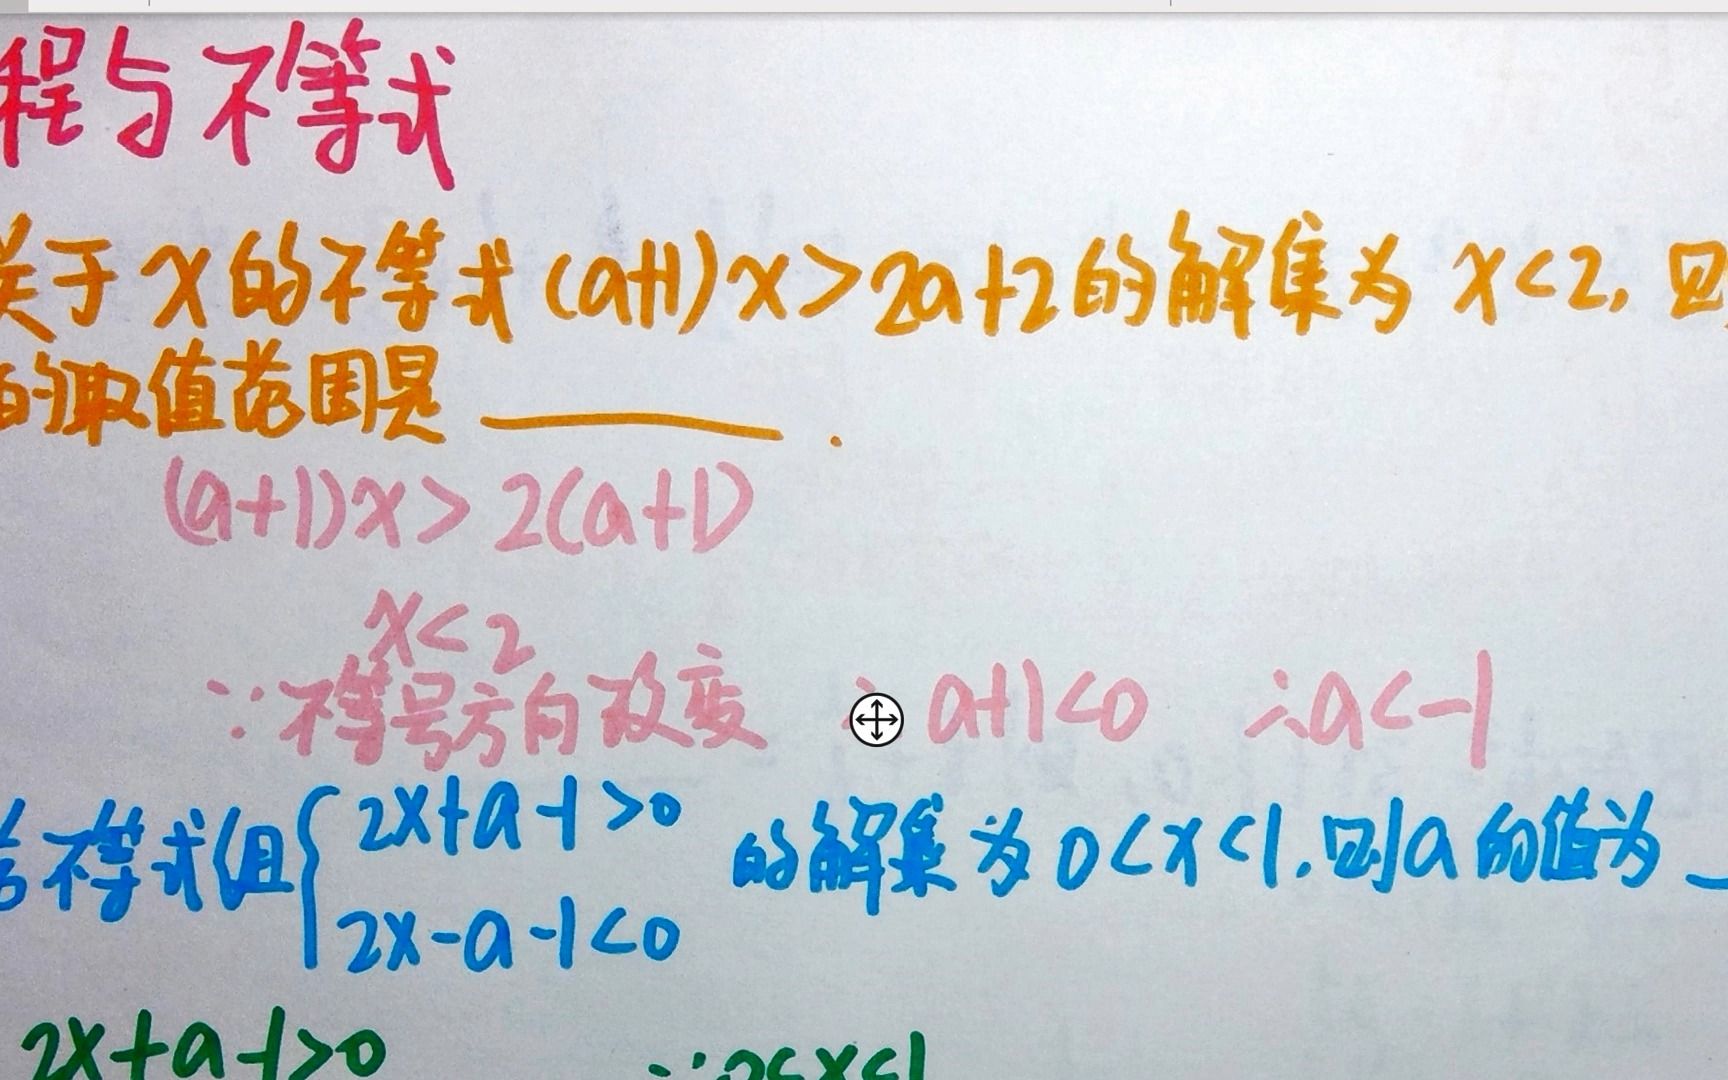 程与不等式
关于x的不等式(a+1)x>2a+2的解集为x<2,则
的取值范围是______.
(a+1)x>2(a+1)
x<2
∵不等号方向改变 ∴a+1<0 ∴a<-1
若不等式组{2x+a-1>0
2x-a-1<0
的解集为0<x<1.则a的值为_
2x+a-1>0 ∵0<x<1